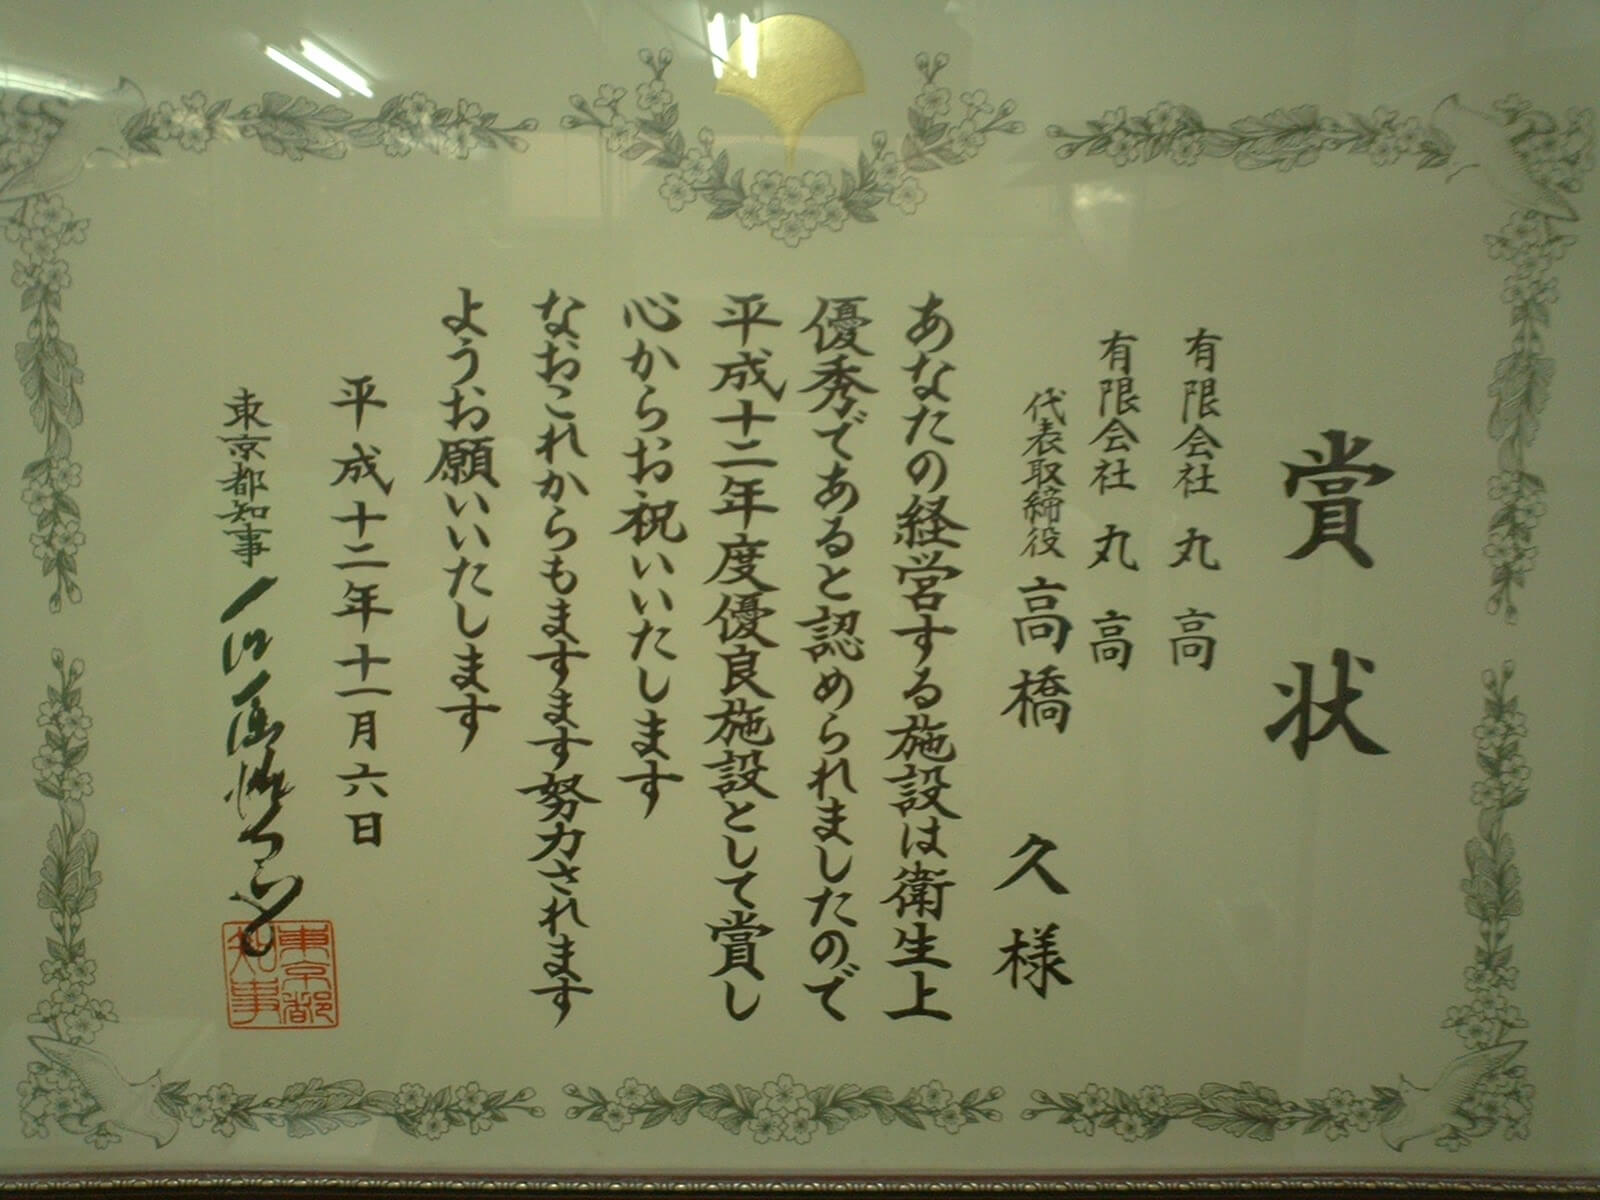 賞状
有限会社 丸高
有限会社 丸高
代表取締役 高橋 久様
あなたの経営する施設は衛生上
優秀であると認められましたので
平成十二年度優良施設として賞し
心からお祝いいたします
なおこれからもますます努力されます
ようお願いいたします
平成十二年十一月六日
東京都知事 石原慎太郎
東京都
知事